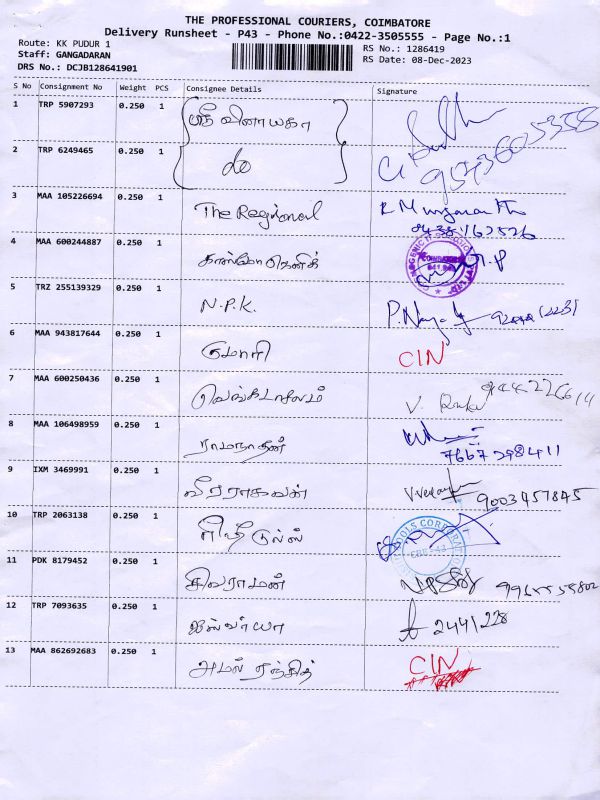 THE PROFESSIONAL COURIERS, COIMBATORE
Delivery Runsheet - P43 - Phone No.:0422-3505555 - Page No.:1
Route: KK PUDUR 1
Staff: GANGADARAN
DRS No.: DCJB128641901
RS No.: 1286419
RS Date: 08-Dec-2023
S No Consignment No Weight PCS Consignee Details Signature
1 TRP 5907293 0.250 1 ஸ்ரீ விநாயகா
2 TRP 6249465 0.250 1 do
3 MAA 105226694 0.250 1 The Regional
4 MAA 600244887 0.250 1 காஸ்மோஜெனிக்
5 TRZ 255139329 0.250 1 N.P.K.
6 MAA 943817644 0.250 1 குமாரி CIN
7 MAA 600250436 0.250 1 வெங்கடாசலம் V.
8 MAA 106498959 0.250 1 ராமநாதன் 7667398411
9 IXM 3469991 0.250 1 வீரராகவன் 9003457845
10 TRP 2063138 0.250 1 ரிஷி டூல்ஸ்
11 PDK 8179452 0.250 1 சிவராமன்
12 TRP 7093635 0.250 1 ஐஸ்வர்யா 2441228
13 MAA 862692683 0.250 1 அமல் ரஞ்சித் CIN